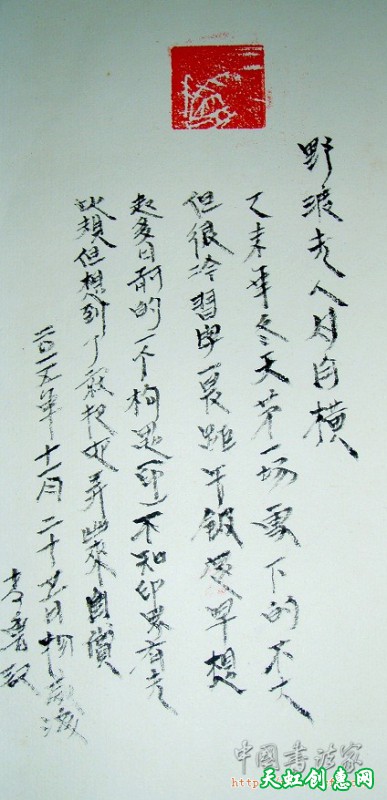 野渡无人舟自横
乙未年冬天第一场雪下的不大
但很冷習字一距午飯早想
起多日前的一个构思印不知印界有无
此類但想到了就把它弄出來自
二〇一五年十一月二十日
記
中国书法家
http
天虹创意网